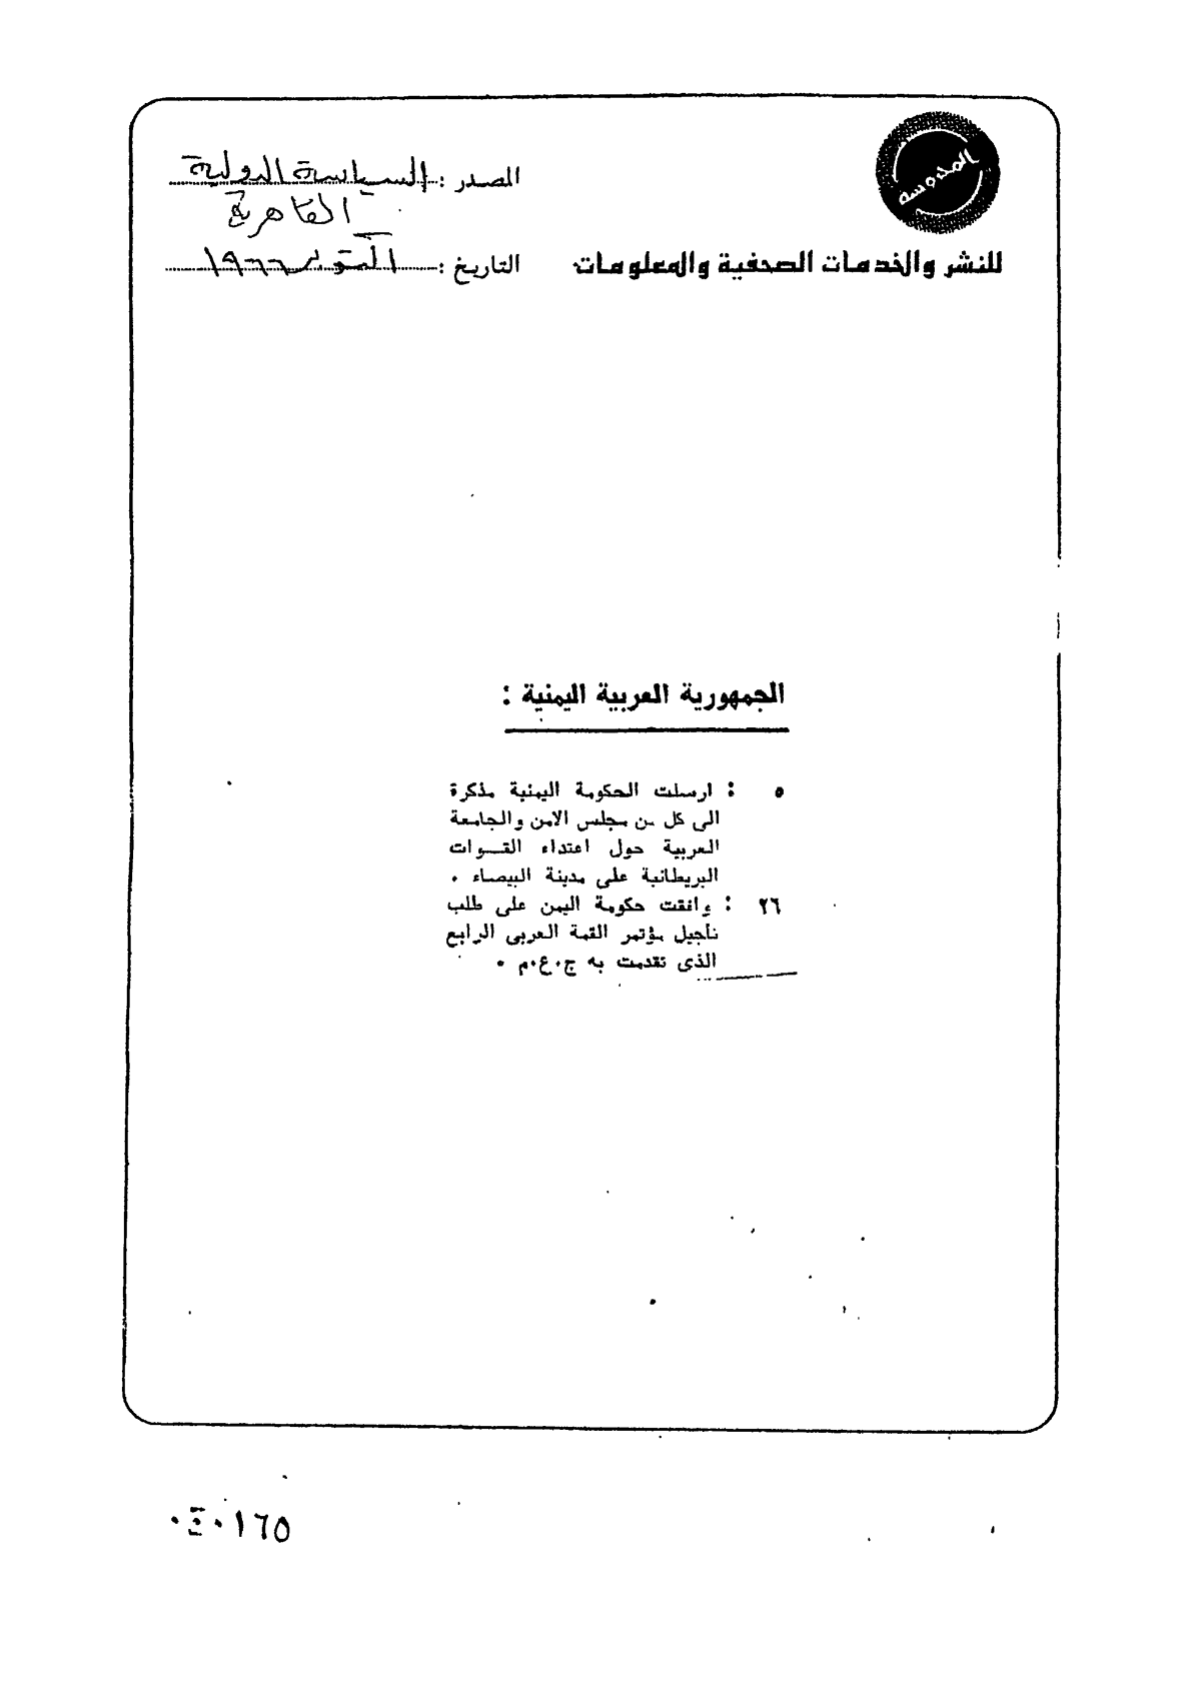 المحروسة
المصدر : السياسة الدولية
القاهرية
للنشر والخدمات الصحفية والمعلومات
التاريخ : اكتوبر ١٩٦٦
الجمهورية العربية اليمنية :
٥ : ارسلت الحكومة اليمنية مذكرة
الى كل من مجلس الامن والجامعة
العربية حول اعتداء القـــوات
البريطانية على مدينة البيضاء .
٢٦ : وافقت حكومة اليمن على طلب
تأجيل مؤتمر القمة العربى الرابع
الذى تقدمت به ج.ع.م .
٠٤٠١٦٥